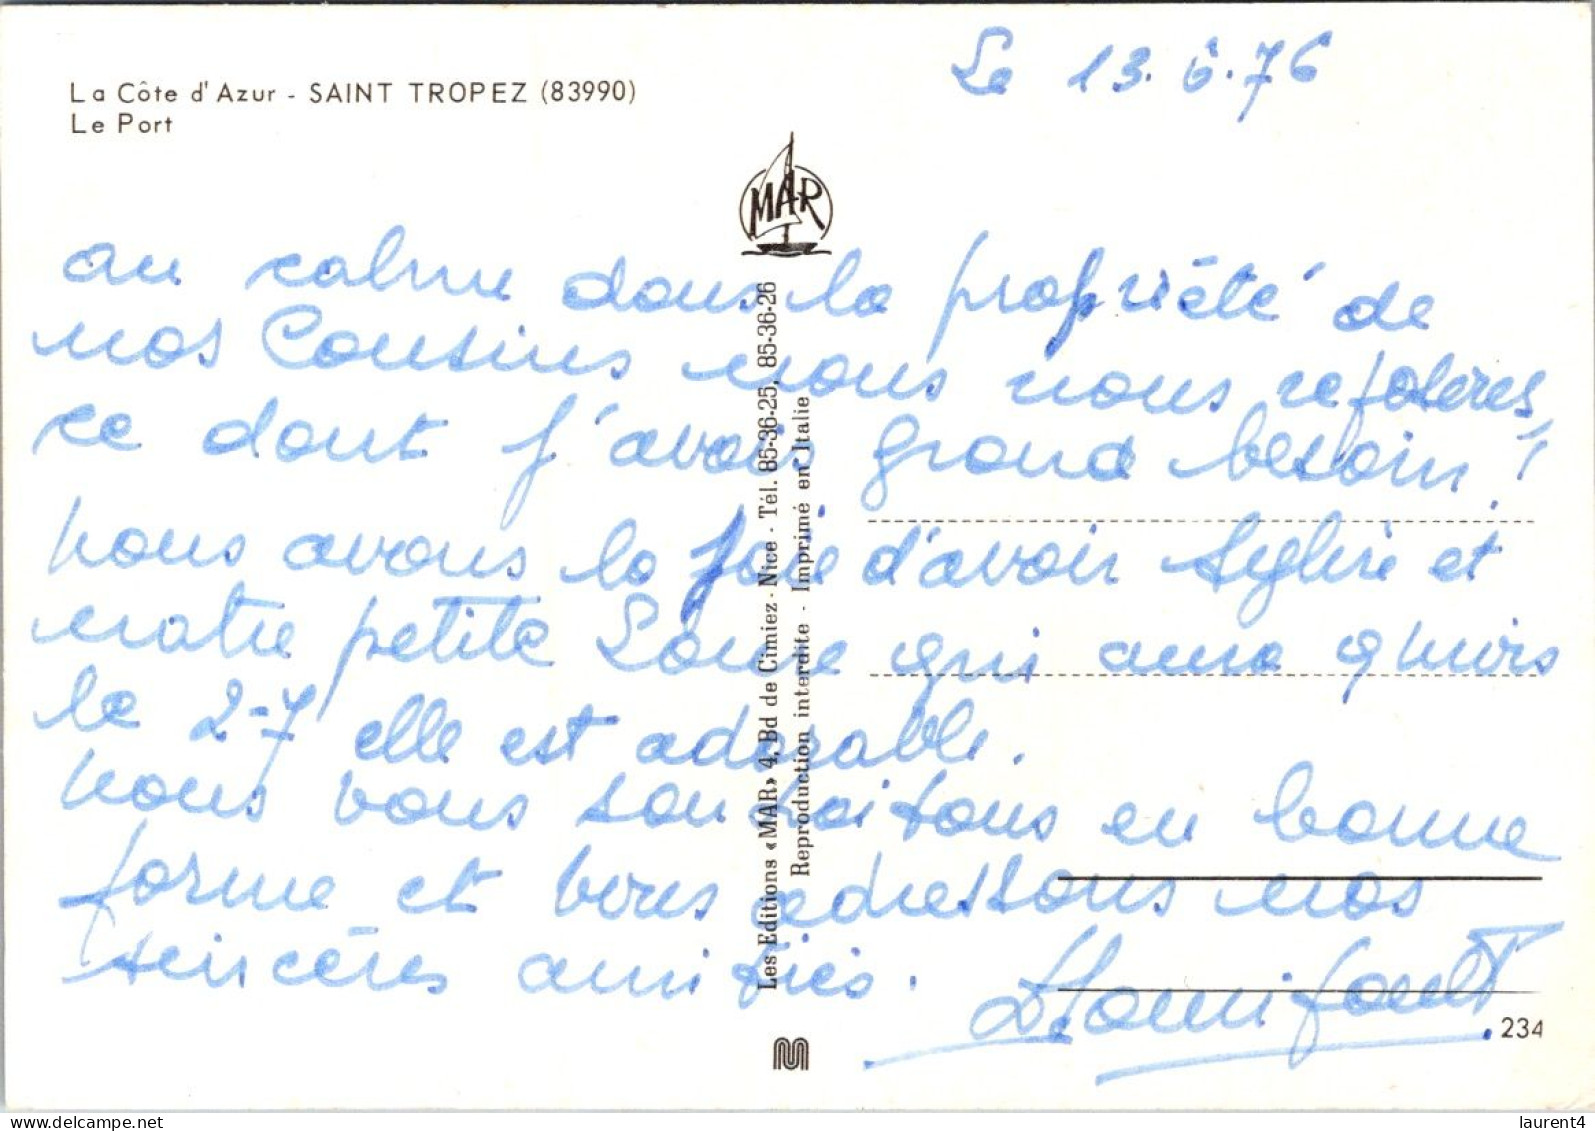 La Côte d'Azur - SAINT TROPEZ (83990)
Le Port
Le 13.6.76
MAR
au calme dans la propriété de
nos Cousins nous nous reposeres
ce dont j'avais grand besoin !
nous avons la joie d'avoir Sylvie et
notre petite qui aura 9 mois
le 2-7 elle est adorable.
nous vous souhaitons en bonne
forme et vous adressons nos
sincères amitiés.
Les Editions «MAR» 4, Bd de Cimiez - Nice - Tél. 85-36-25, 85-36-26
Reproduction interdite - Imprimé en Italie
234
laurent4